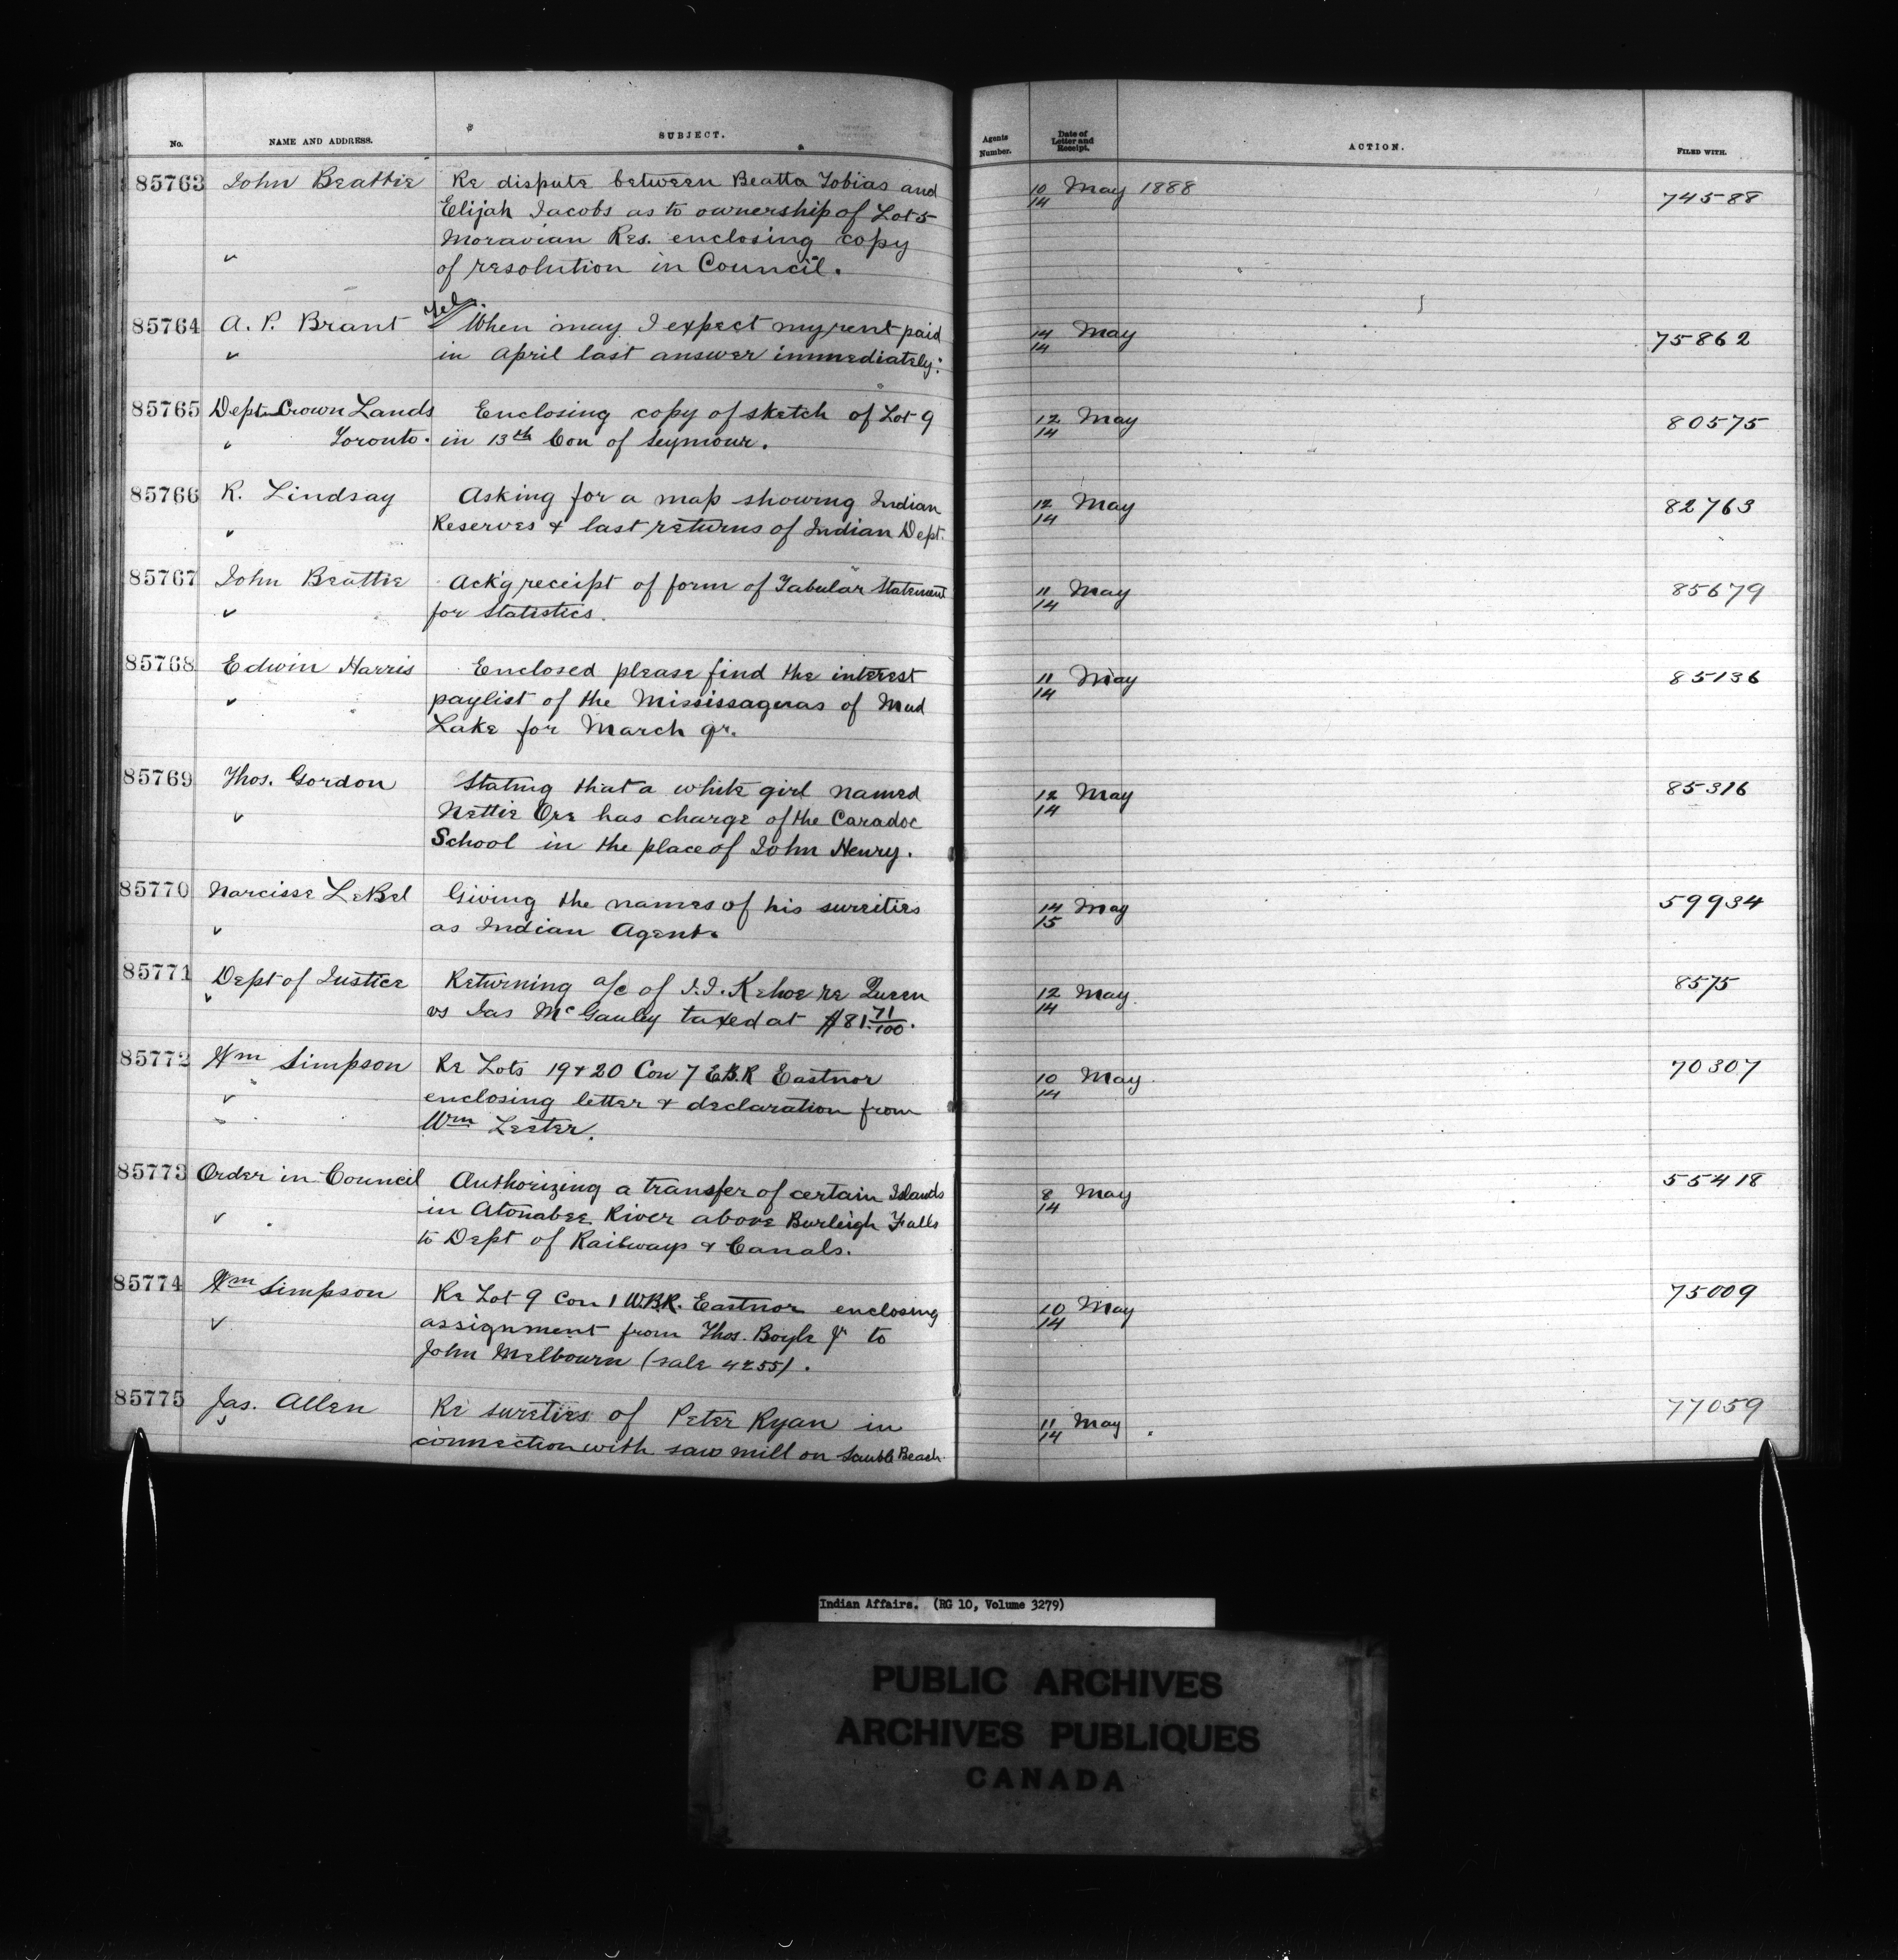 No. NAME AND ADDRESS. SUBJECT. Agents Number. Date of Letter and Receipt. ACTION. FILED WITH.
85763 John Beattie Re dispute between Beatta Tobias and 10/14 May 1888 74588
Elijah Jacobs as to ownership of Lot 5
Moravian Res. enclosing copy
of resolution in Council.
85764 A. P. Brant Tel. When may I expect my rent paid 14/14 May 75862
in April last answer immediately:
85765 Dept Crown Lands Enclosing copy of sketch of Lot 9 12/14 May 80575
Toronto. in 13th Con of Seymour.
85766 R. Lindsay Asking for a map showing Indian 12/14 May 82763
Reserves & last returns of Indian Dept.
85767 John Beattie Ack'g receipt of form of Tabular Statement 11/14 May 85679
for Statistics.
85768 Edwin Harris Enclosed please find the interest 11/14 May 85136
paylist of the Mississaguas of Mud
Lake for March qr.
85769 Thos. Gordon Stating that a white girl named 12/14 May 85316
Nettie Ore has charge of the Caradoc
School in the place of John Henry.
85770 Narcisse LeBel Giving the names of his sureities 14/15 May 59934
as Indian Agent.
85771 Dept of Justice Returning a/c of J.J. Kehoe re Queen 12/14 May 8575
vs Jas McGauley taxed at $81.71/100.
85772 Wm Simpson Re Lots 19 & 20 Con 7 E.B.R Eastnor 10/14 May 70307
enclosing letter & declaration from
Wm Lester.
85773 Order in Council Authorizing a transfer of certain Islands 8/14 May 55418
in Atonabee River above Burleigh Falls
to Dept of Railways & Canals.
85774 Wm Simpson Re Lot 9 Con 1 W.B.R. Eastnor enclosing 10/14 May 75009
assignment from Thos. Boyle Jr to
John Melbourn (sale 4255).
85775 Jas. Allen Re sureties of Peter Ryan in 11/14 May 77059
connection with saw mill on Sauble Beach
Indian Affairs. (RG 10, Volume 3279)
PUBLIC ARCHIVES
ARCHIVES PUBLIQUES
CANADA